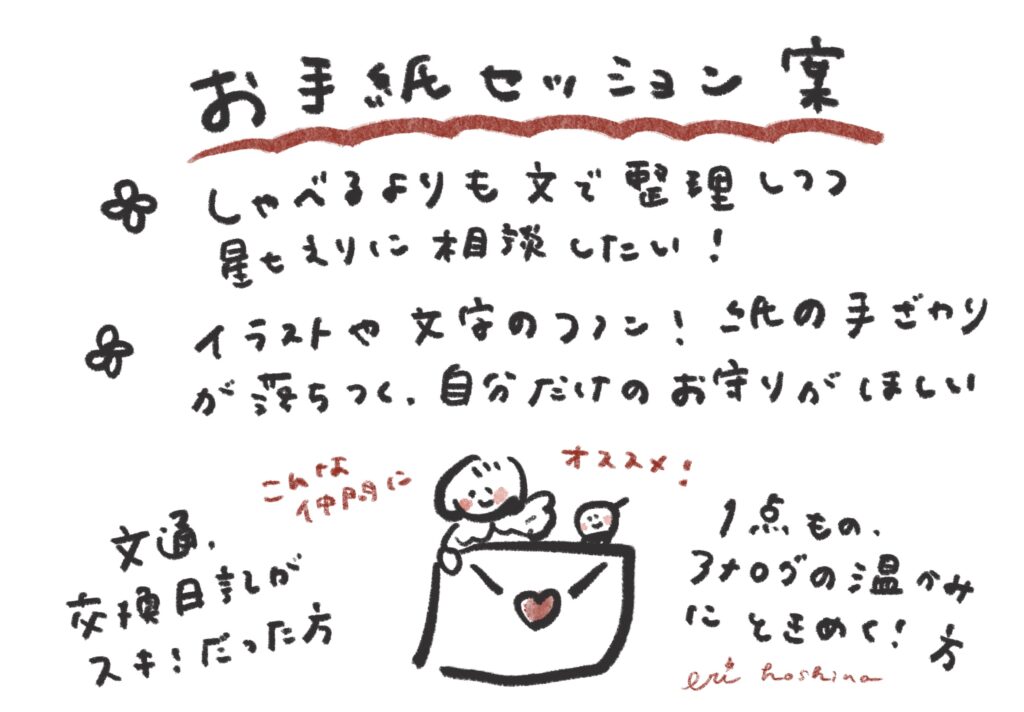 お手紙セッション案
しゃべるよりも文で整理しつつ
星もえりに相談したい!
イラストや文字のファン! 紙の手ざわり
が落ちつく、自分だけのお守りがほしい
こんな
仲間に
オススメ!
文通、
交換日記が
スキ!だった方
1点もの、
アナログの温かみ
にときめく!方
eri hoshina